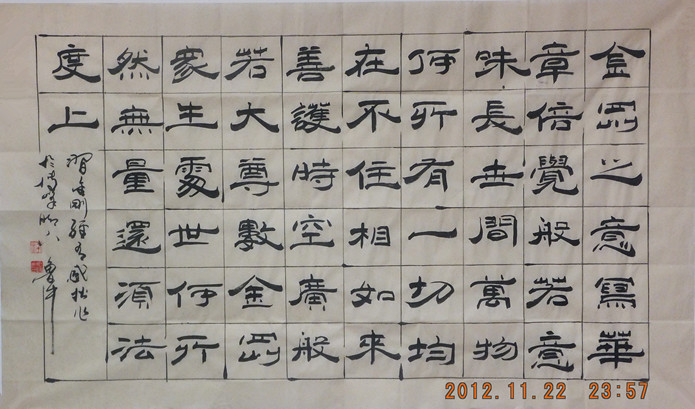 金罡之意寫華
章倍覺般若意
味長世間萬物
何所有一切均
在不住相如來
善護時空廣般
若大尊數金罡
衆生處世何所
然無量還須法
度上
習金剛經有感拙作
於
2012.11.22 23:57